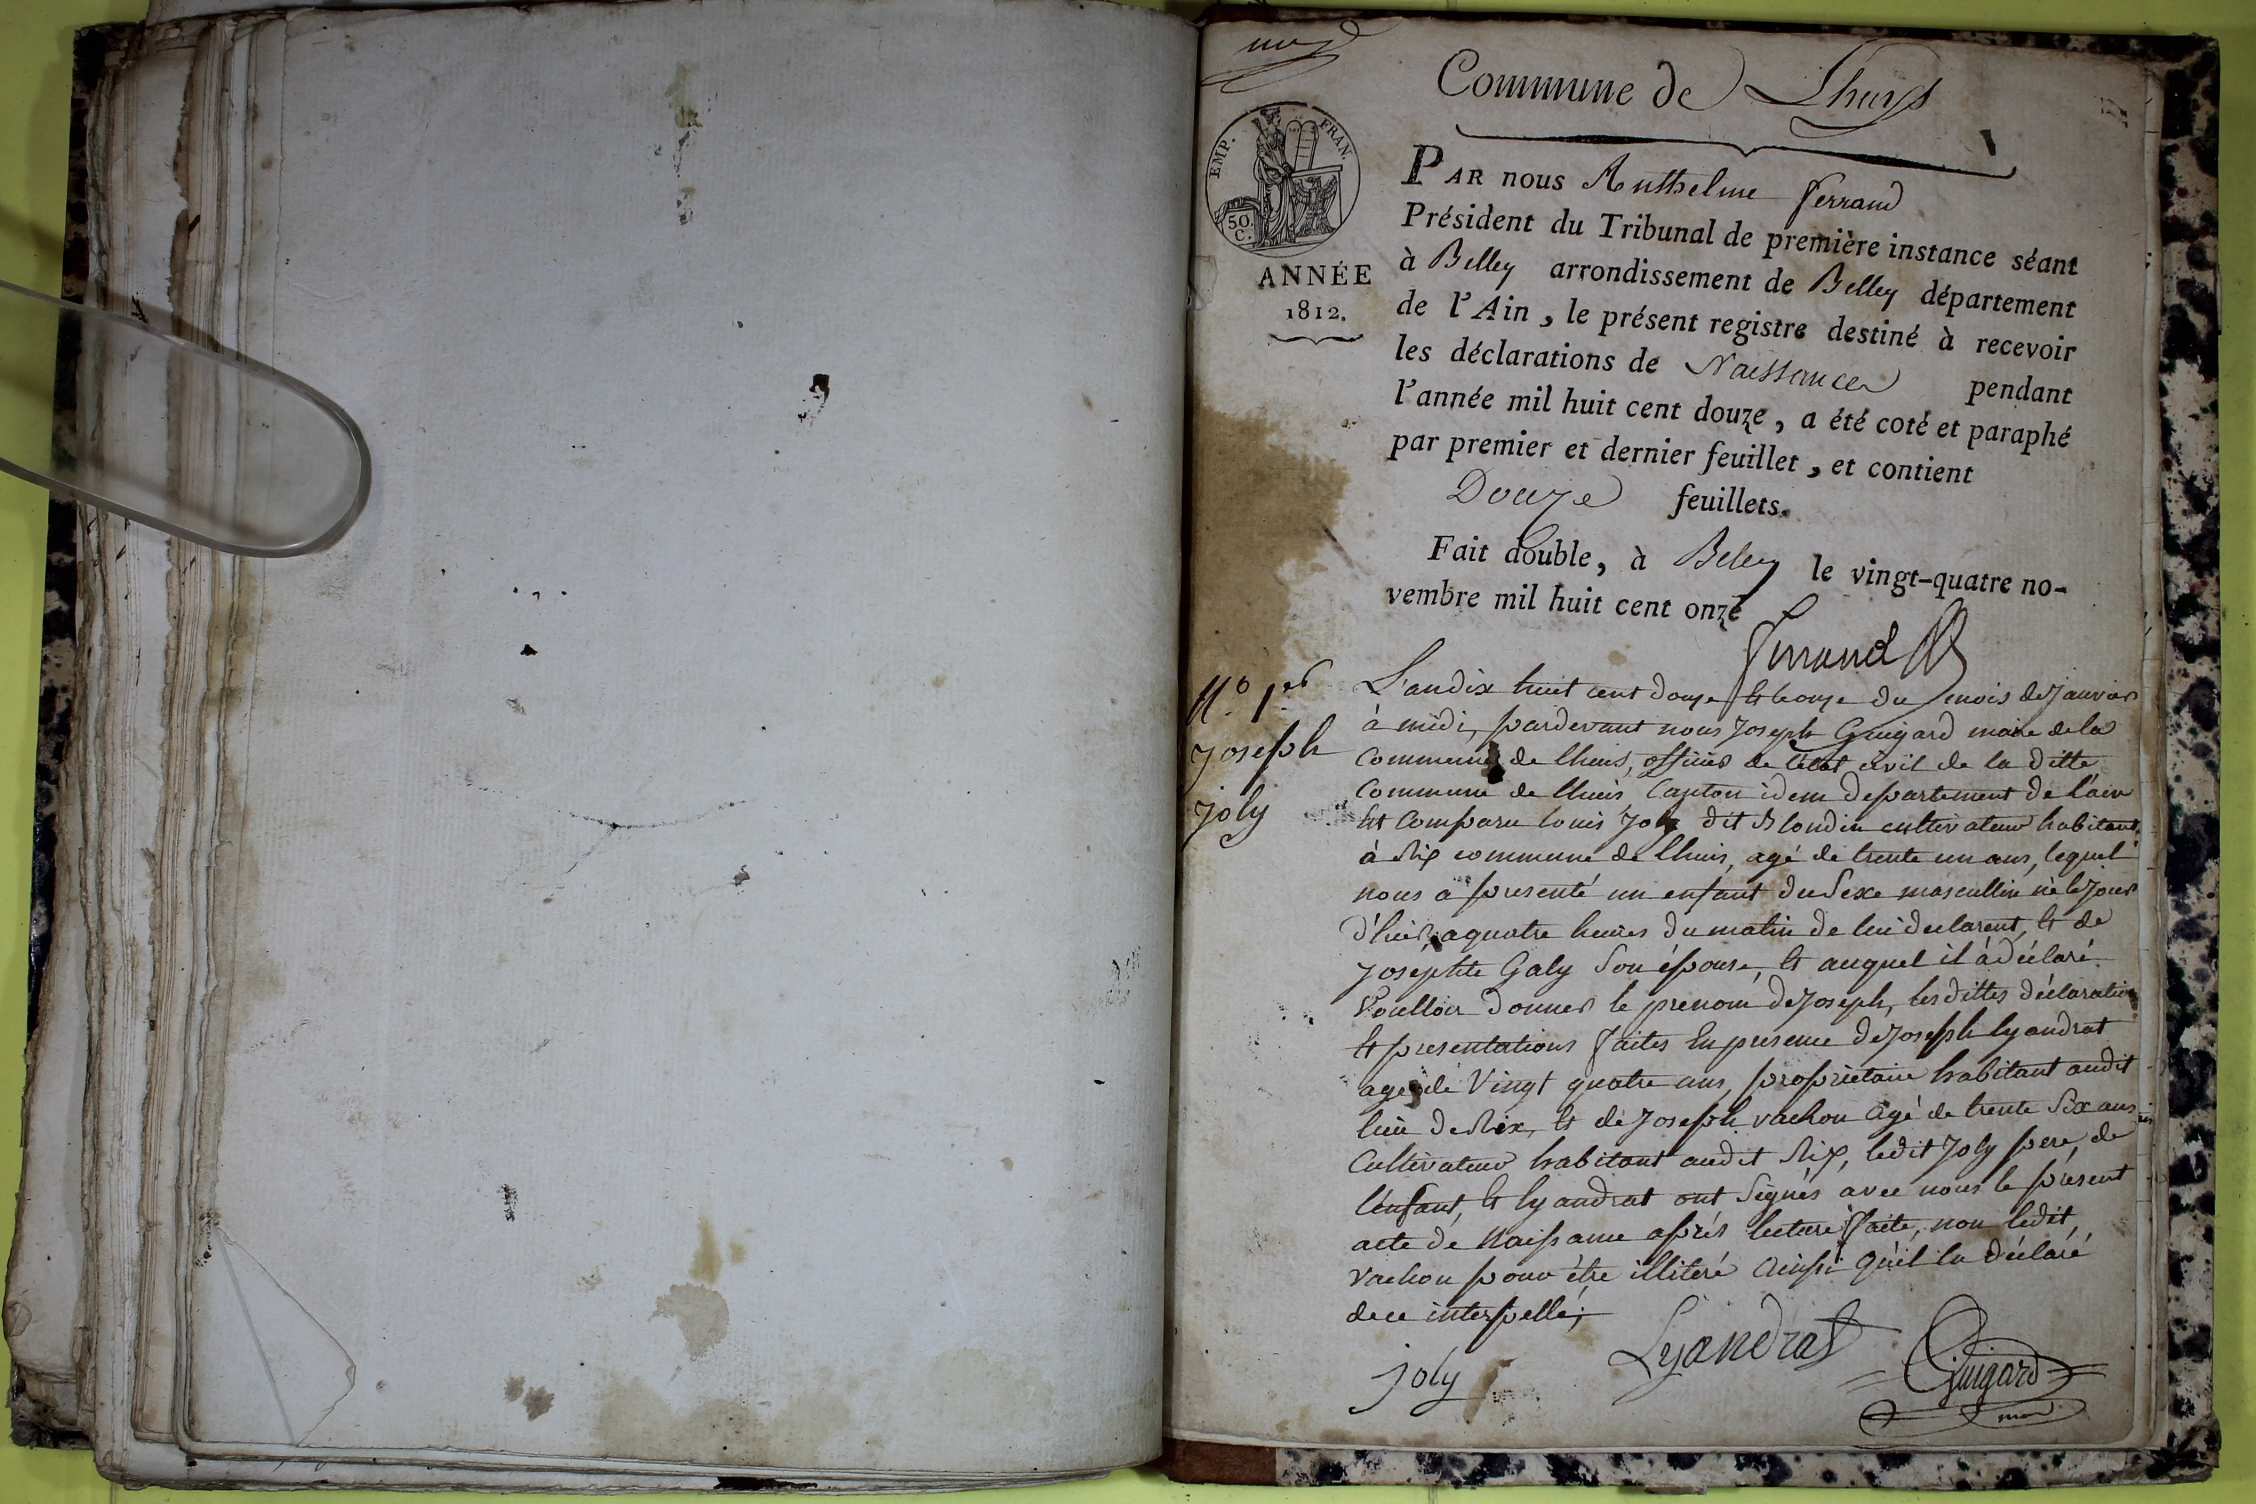 une
Commune de Lhuys
EMP. FRAN.
50. C.
ANNÉE
1812.
PAR nous Anthelme ferrand
Président du Tribunal de première instance séant
à Belley arrondissement de Belley département
de l'Ain, le présent registre destiné à recevoir
les déclarations de Naissances pendant
l'année mil huit cent douze, a été coté et paraphé
par premier et dernier feuillet, et contient
Douze feuillets.
Fait double, à Belley le vingt-quatre no-
vembre mil huit cent onze
ferrand
N.º 1.er
joseph
joly
L'an dix huit cent douze et le onze du mois de janvier
à midi, pardevant nous joseph Guigard maire de la
commune de lhuis, officier de l'état civil de la ditte
commune de lhuis, Canton idem departement de l'ain
est comparu louis joly dit Blondin cultivateur habitant
à Rix commune de lhuis, agé de trente un ans, lequel
nous a presenté un enfant du sexe mascullin né le jour
d'hier, a quatre heures du matin de lui declarant, et de
josephte Galy son épouse, et auquel il à déclaré
voulloir donner le prenom de joseph, les dittes déclaration
et presentations faites en presence de joseph lyandrat
agé de vingt quatre ans, proprietaire habitant audit
lieu de Rix, et de joseph vachon agé de trente six ans
cultivateur habitant audit Rix, ledit joly pere, de
l'enfant, et lyandrat ont signés avec nous le présent
acte de naissance aprés lecture faite, non ledit,
vachon pour être illiteré ainsi qu'il la déclaré
de ce interpellé;
joly Lyandrat Guigard